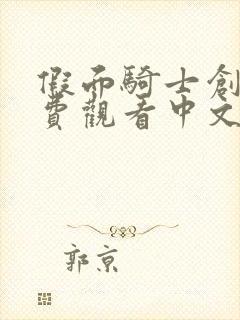 假面騎士創
費觀看中文
郭京